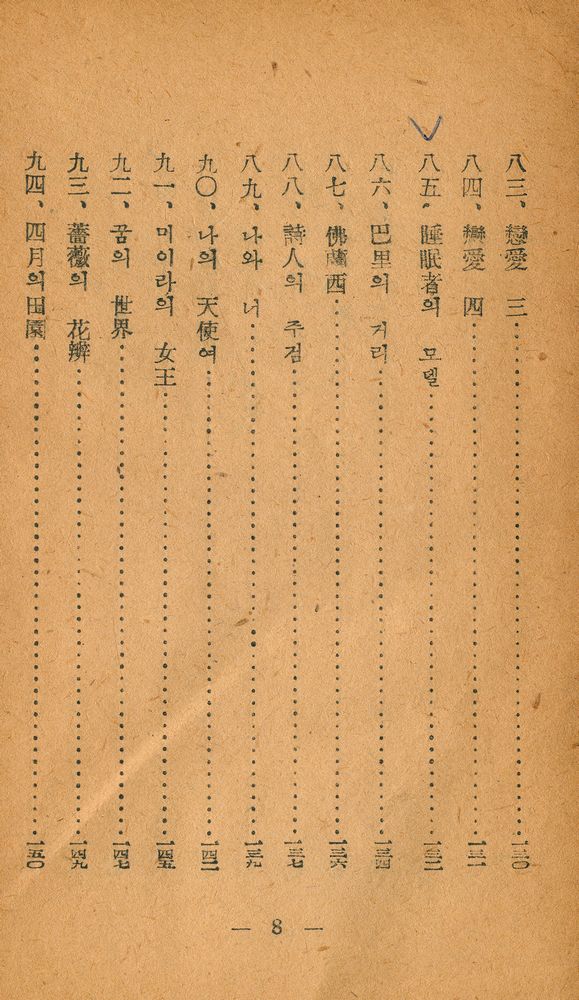 八三、戀愛 三……一三〇
八四、戀愛 四……一三一
八五、睡眠者의 모델……一三二
八六、巴里의 거리……一三四
八七、佛蘭西……一三六
八八、詩人의 주검……一三七
八九、나와 너……一三九
九〇、나의 天使여……一四二
九一、미이라의 女王……一四五
九二、꿈의 世界……一四七
九三、薔薇의 花辨……一四九
九四、四月의 田園……一五〇
— 8 —